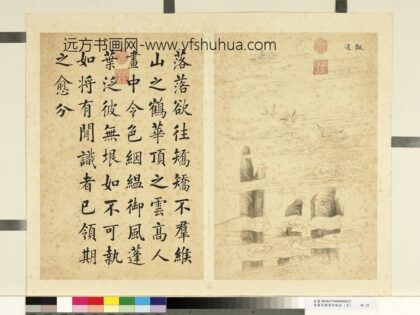 远方书画网-www.yfshuhua.com
飄逸
落落欲往矯矯不羣緱
山之鶴華頂之雲高人
畫中令色絪縕御風蓬
葉泛彼無垠如不可執
如將有聞識者已領期
之愈分